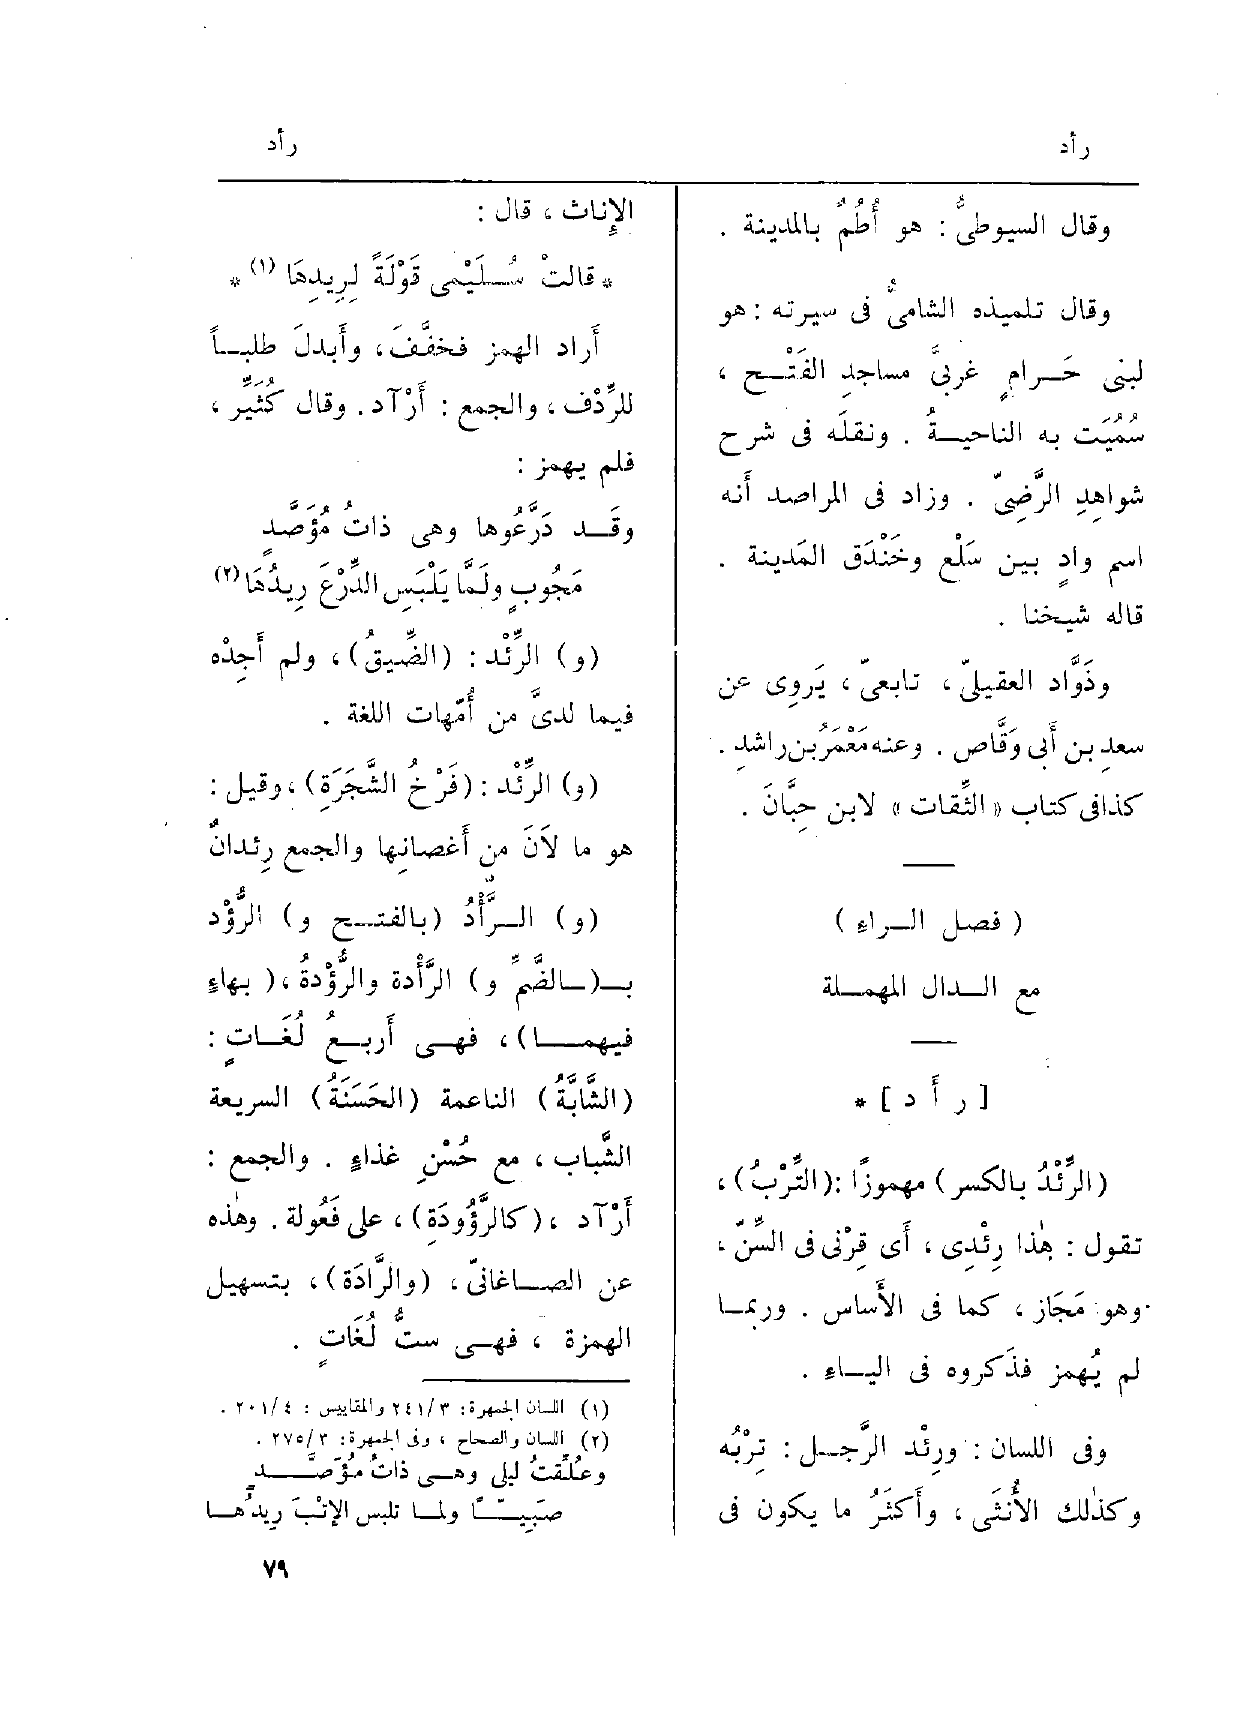 رأد
رأد
وقال السيوطىُّ : هو أُطُمٌ بالمدينة .
وقال تلميذه الشامىُّ فى سيرته : هو
لبنى حَرامٍ غربىَّ مساجدِ الفَتْح ،
سُمِّيَت به الناحيةُ . ونقلَه فى شرح
شواهِدِ الرَّضِىّ . وزاد فى المراصد أَنه
اسم وادٍ بين سَلْعٍ وخَنْدَق المَدينة .
قاله شيخنا .
وذَوَّاد العقيلىّ ، تابعىّ ، يَروِى عن
سعدِ بن أَبى وَقَّاص . وعنه مَعْمَرُ بن راشدِ .
كذا فى كتاب « الثِّقات » لابن حِبَّانَ .
( فصل الراء )
مع الدال المهملة
[ ر أ د ] *
(الرِّئْدُ بالكسر) مهموزًا : (التِّرْبُ) ،
تقول : هٰذا رِئْدِى ، أَى قِرْنى فى السِّنّ ،
وهو مَجَاز ، كما فى الأَساس . وربما
لم يُهمز فذَكروه فى الياء .
وفى اللسان : ورِئْد الرَّجل : تِرْبُه
وكذٰلك الأُنثَى ، وأَكثَرُ ما يكون فى
الإِناث ، قال :
* قالتْ سُلَيْمى قَوْلَةً لِرِيدِهَا (١) *
أَراد الهمز فخفَّفَ ، وأَبدلَ طلباً
للرِّدْف ، والجمع : أَرْآد . وقال كُثَيِّر ،
فلم يهمز :
وقَد دَرَّعُوها وهى ذاتُ مُؤَصَّدٍ
مَجُوبٍ ولَمَّا يَلْبَسِ الدِّرْعَ رِيدُهَا (٢)
(و) الرِّئْد : (الضِّيقُ) ، ولم أَجِدْه
فيما لدىَّ من أُمّهات اللغة .
(و) الرِّئْد : (فَرْخُ الشَّجَرَةِ) ، وقيل :
هو ما لَانَ من أَغصانِها والجمع رِئدانٌ
(و) الرَّأْدُ (بالفتح و) الرُّؤْد
بـ(ـالضَّمِّ و) الرَّأْدة والرُّؤْدةُ ، (بهاءٍ
فيهما) ، فهى أَربعُ لُغَاتٍ :
(الشَّابَّةُ) الناعمة (الحَسَنَةُ) السريعة
الشَّباب ، مع حُسْنِ غذاءٍ . والجمع :
أَرْآد ، (كالرَّؤُودَةِ) ، على فَعُولة . وهٰذه
عن الصاغانىّ ، (والرَّادَة) ، بتسهيل
الهمزة ، فهى ستُّ لُغَاتٍ .
(١) اللسان الجمهرة : ٣/ ٢٤١ والمقاييس : ٤/ ٢٠١ .
(٢) اللسان والصحاح ، وفى الجمهرة : ٣/ ٢٧٥ .
وعُلِّقتُ ليلى وهى ذاتُ مُؤَصَّدٍ
صَبِيًّا ولما تلبس الإتْبَ رِيدُها
٧٩